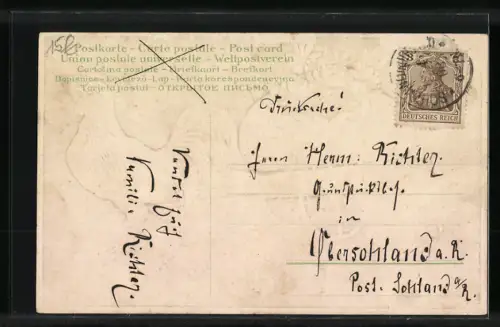 15f
Postkarte - Carte postale - Post card
Union postale universelle - Weltpostverein
Cartolina postale - Briefkaart - Brefkort
Dopisnice - Levelező-Lap - Karta korespondencyjna
Tarjeta postal - ОТКРЫТОЕ ПИСЬМО
3
DEUTSCHES REICH
Drucksache!
Herrn Herm. Richter
in
Obersohland a. R.
Post. Sohland a/R.
Familie
Richter.